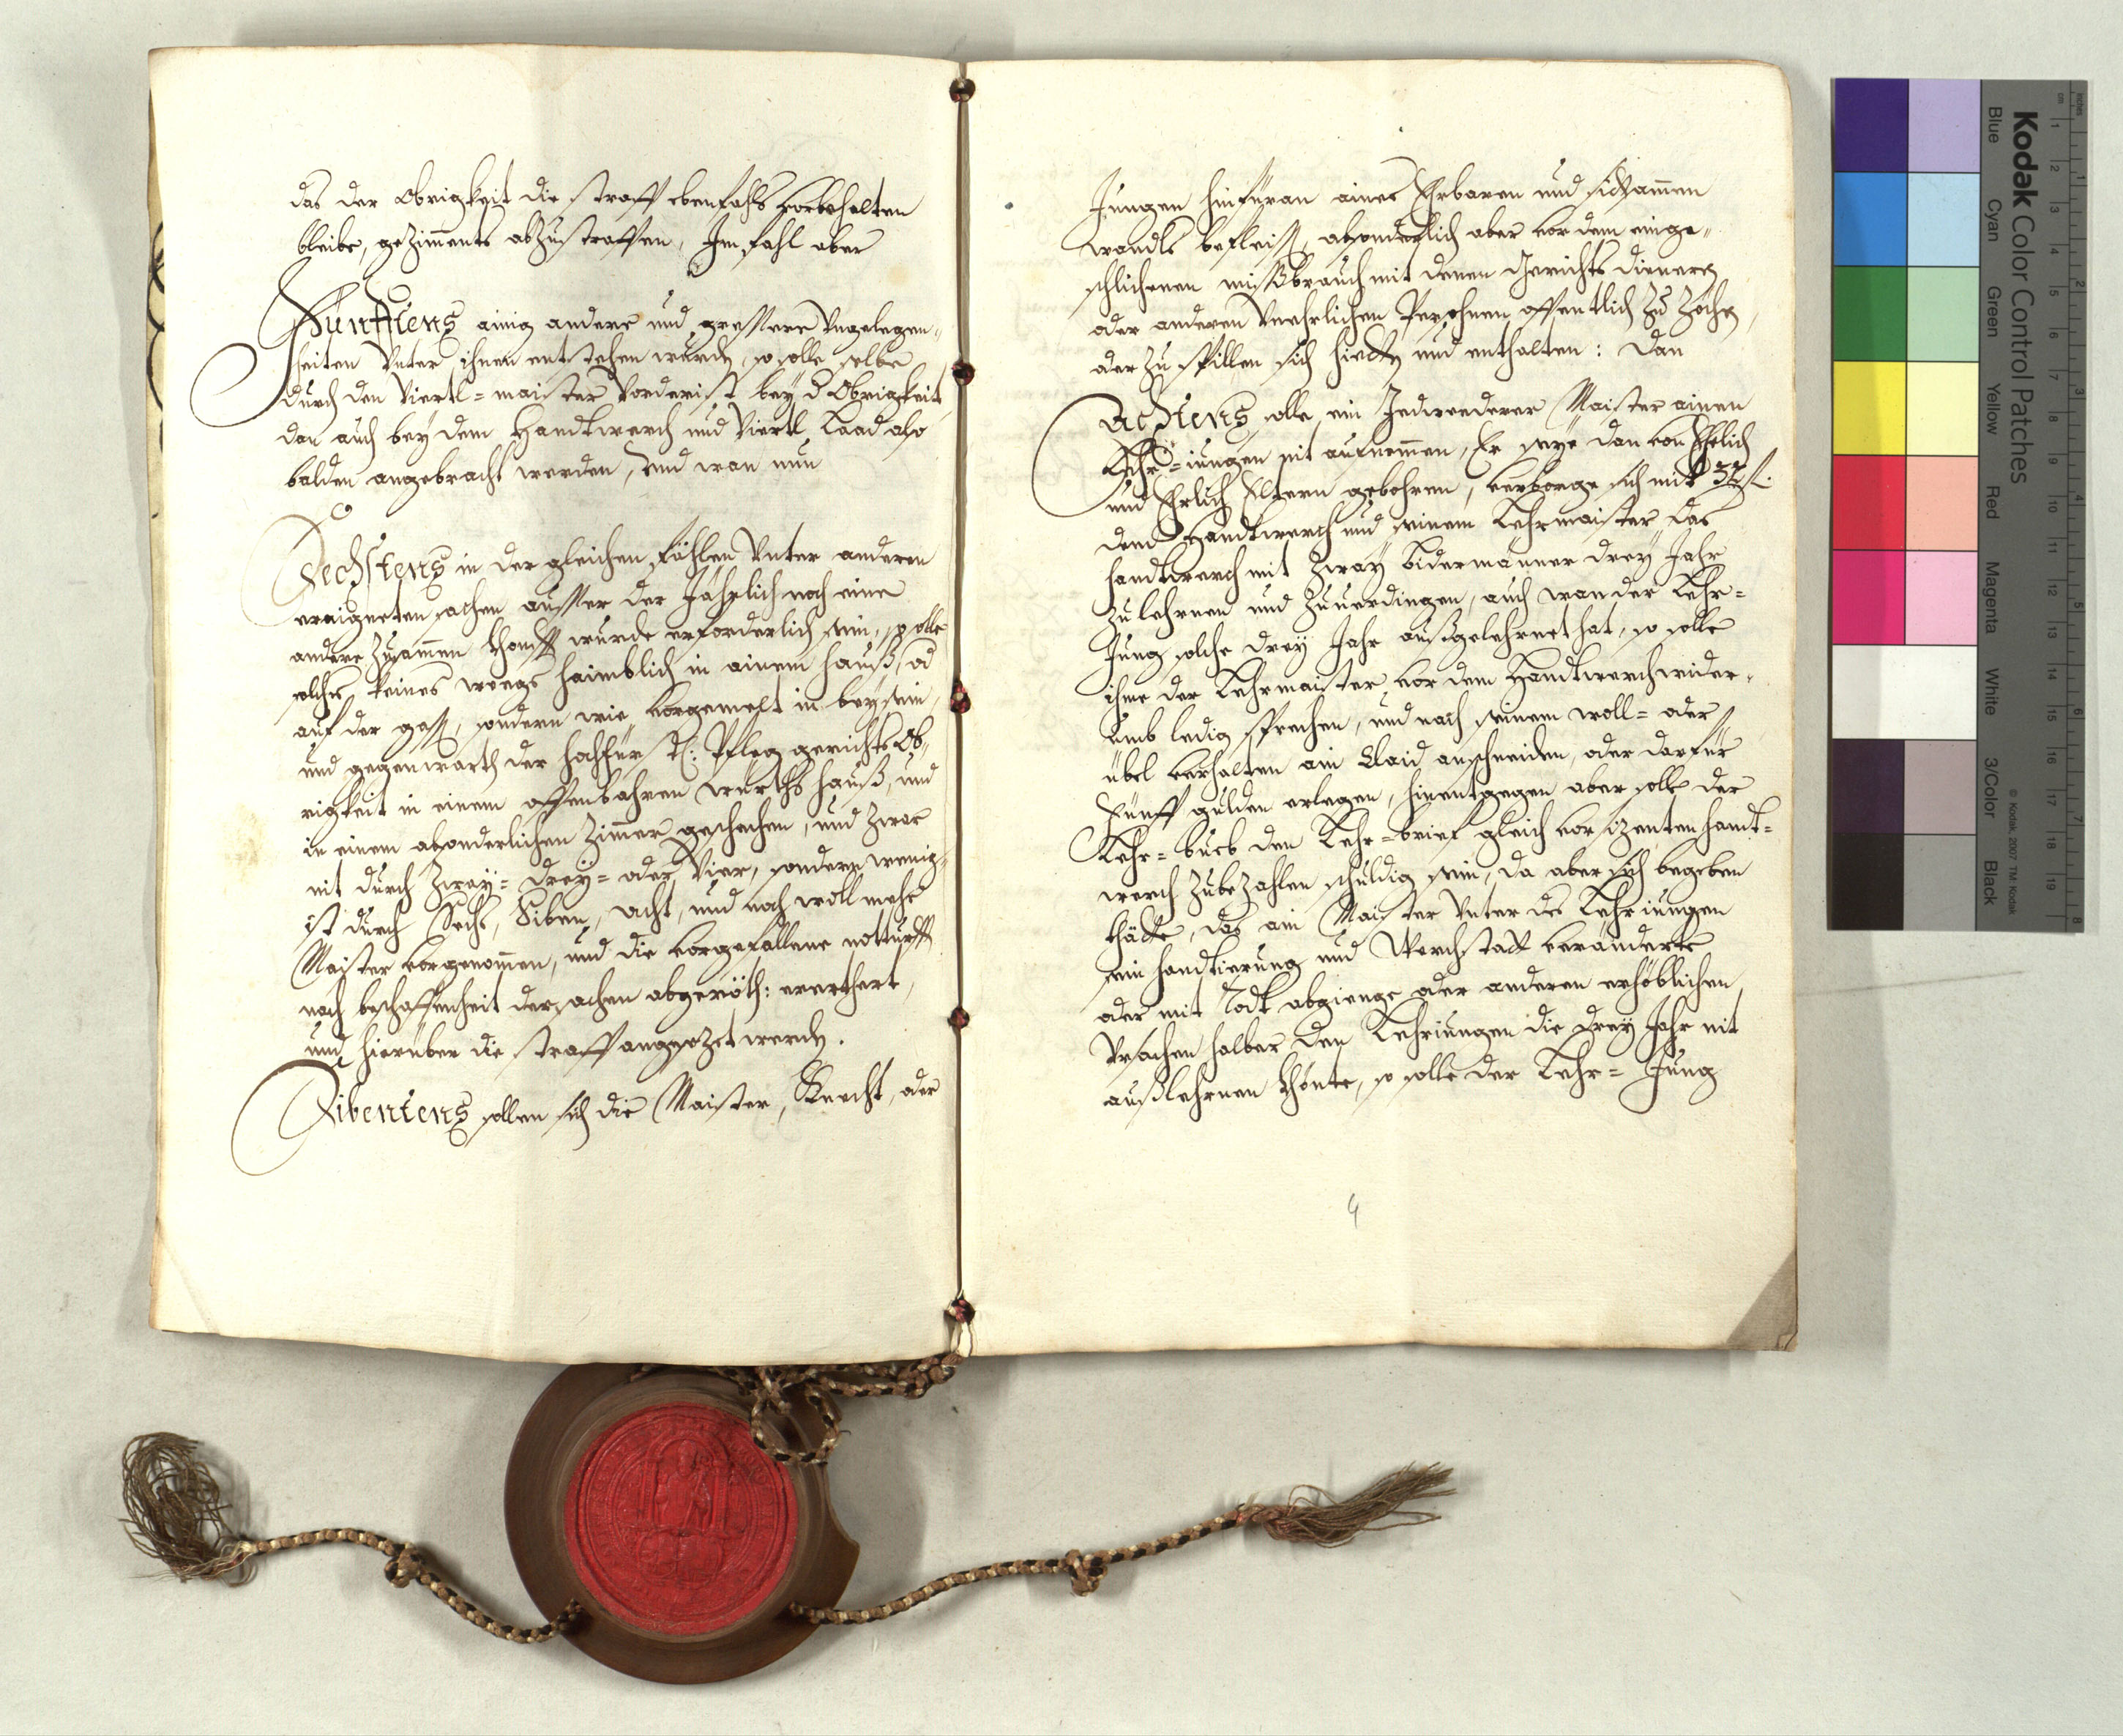 das der Obrigkeit die straff ebenfahls vorbehalten
bleibe, gezimments abzustraffen, Im fahl aber
Fünfftens ainig andere und gressere Ungelegen-
heiten Unter ihnen entstehen wurdn, so solle selbe
durch den Viertl=maister Vorderist bey d Obrigkeit,
dan auch bey dem Handtwerch und Viertl Laad also
balden angebracht werden, und wan nun
Sechstens in der gleichen fählen Unter anderen
eraigneten sachen ausser der Jährlich noch eine
andere Zusammen khonfft wurde erforderlich sein, so solle
solches keines weegs haimblich in ainem hauß, od
auf der gass, sondern wie vorgemelt in beysein,
und gegenwarth der hochfürstl: Pfleg gerichts Ob-
rigkeit in einem offenbahren würths hauß, und
in einem absonderlichen Zimmer geschechen, und zwar
nit durch Zwey= drey= oder Vier, sondern wenig-
ist durch Sechs, Siben, Acht, und noch woll mehr
Maister vorgenommen, und die vorgefallene notturfft
nach beschaffenheit der sachen abgeröth: erörthert,
und hierüber die straff angesezt werdn.
Sibentens sollen sich die Maister, Knecht, oder
Jungen hinfüran aines Ehrbaren und sichsammen
wandls befleiss, absonderlich aber vor dem einge-
schlichenen mißbrauch mit denen Gerichts dienern,
oder anderen Unehrlichen Persohnen offentlich zu Zöchn,
oder zu spillen sich hietten und enthalten: dan
Achtens, solle ein Jedwederer Maister ainen
Lehr=jungen nit aufnemmen, Er seye dan von Ehelich
und Ehrlich Eltern gebohren, verborge sich mit 32 fl.
dem Handtwerch und seinem Lehrmaister das
handtwerch mit zway bidermänner drey Jahr
zulehrnen und zuuerdingen, auch wan der Lehr=
Jung solche drey Jahr außgelehrnet hat, so solle
ihme der Lehrmaister vor dem Handtwerch wider-
umb ledig sprechen, und nach seinem woll= oder
übel verhalten ain Claid anschneiden, oder darfür
Fünff gulden erlegen, hinentgegen aber solle der
Lehr=bueb den Lehr=brief gleich vor sizenten handt=
werch zubezahlen schuldig sein, da aber sich begeben
thätte, das ain Maister Unter des Lehrjungen
sein handtierung und Werchstatt veränderte
oder mit Todt abgienge oder anderen erhöblichen
Ursachen halber den Lehrjungen die drey Jahr nit
außlehrnen khönte, so solle der Lehr=Jung
4
Kodak Color Control Patches
Blue Cyan Green Yellow Red Magenta White 3/Color Black
© Kodak, 2007 TM: Kodak
inches 1 2 3 4 5 6 7 8
cm 1 2 3 4 5 6 7 8 9 10 11 12 13 14 15 16 17 18 19